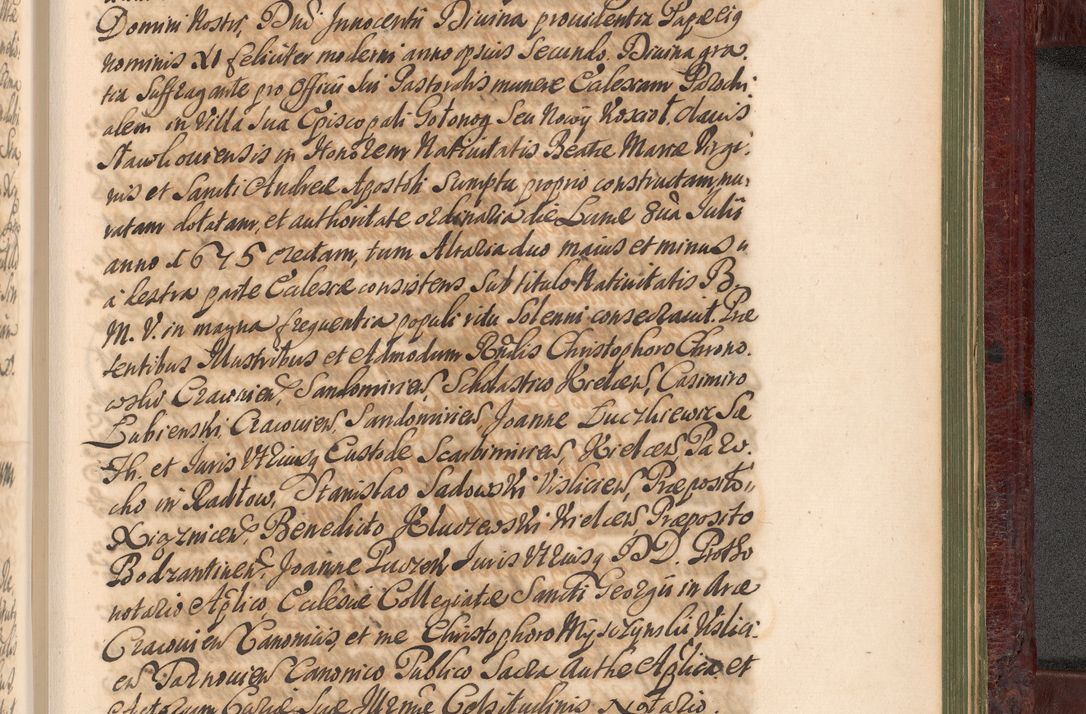 Domini Nostri, Dni Innocentii Divina providentia Papæ eiq
nominis XI feliciter moderni anno ipsius Secundo. Divina gra:
tia Suffragante pro Officii sui Pastoralis munere Ecclesiam Parochi
alem in Villa Sua Episcopali Gołonog Seu Nowy Kossioł, dicecis
Slawkoviensis in Honorem Nativitatis Beatæ Mariæ Virgi:
nis et Sancti Andreæ Apostoli Sumptu proprio constructam, mu:
ratam dotatam, et authoritate ordinaria die Lunæ 8va Julii
anno 1675 erectam, tum Altaria duo maius et minus a
dextra parte Ecclesiæ consistens Sub titulo Nativitatis B.
M. V. in magna frequentia populi ritu Solenni consecravit. Præ
sentibus Illustribus et Admodum Rndis Christophoro Chrono.
wski Cracovien, Sandomirien, Scholastico Kielcen, Casimiro
Łubienski, Cracovien, Sandomirien, Joanne Łuczkiewic Sæ
Th. et Juris Utriusq Custode Scarbimirien Kielcen, Paro.
cho in Radłow, Stanislao Sadowski Vislicien, Præposito
Xiążnicen, Benedicto Kluczewski Kielcen, Præposito
Bodzantinen, Joanne Puczek Juris Utriusq DD. Protho
notario Aplico Ecclesiæ Collegiatæ Sancti Georgii in Arce
Cracovien Canonicis, et me Christophoro Myszynski Vislici
en Tarnovien Canonico Publico Sacra Authe Aplica et
Actorum Causæ Suæ Illrmæ Celsitudinis Notario.